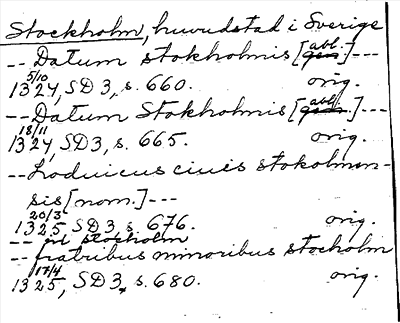 Stockholm, huvudstad i Sverige
-- Datum stokholmis [abl.]---
5/10
1324, SD3, s. 660. orig.
-- Datum Stokholmis [abl.]---
18/11
1324, SD3, s. 665. orig.
-- Lodvicus ciuis stokolmen-
sis [nom.]---
20/3
1325, SD3, s. 676. orig.
-- stocholm
-- fratribus minoribus stocholm
17/4
1325, SD3, s. 680. orig.